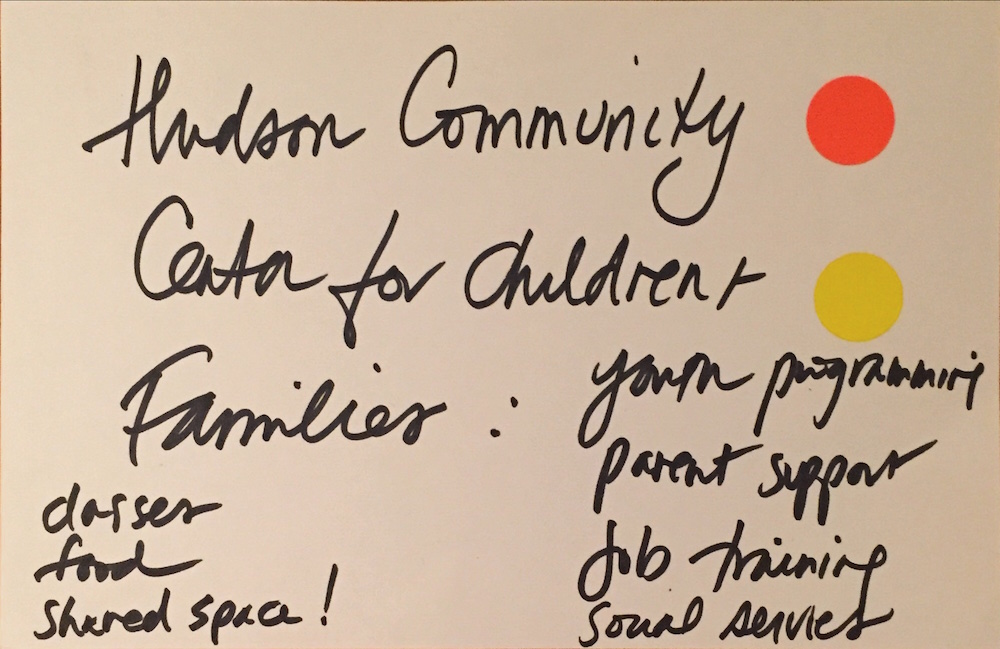 Hudson Community
Center for Children +
Families :
youth programming
parent support
job training
social services
classes
food
shared space!